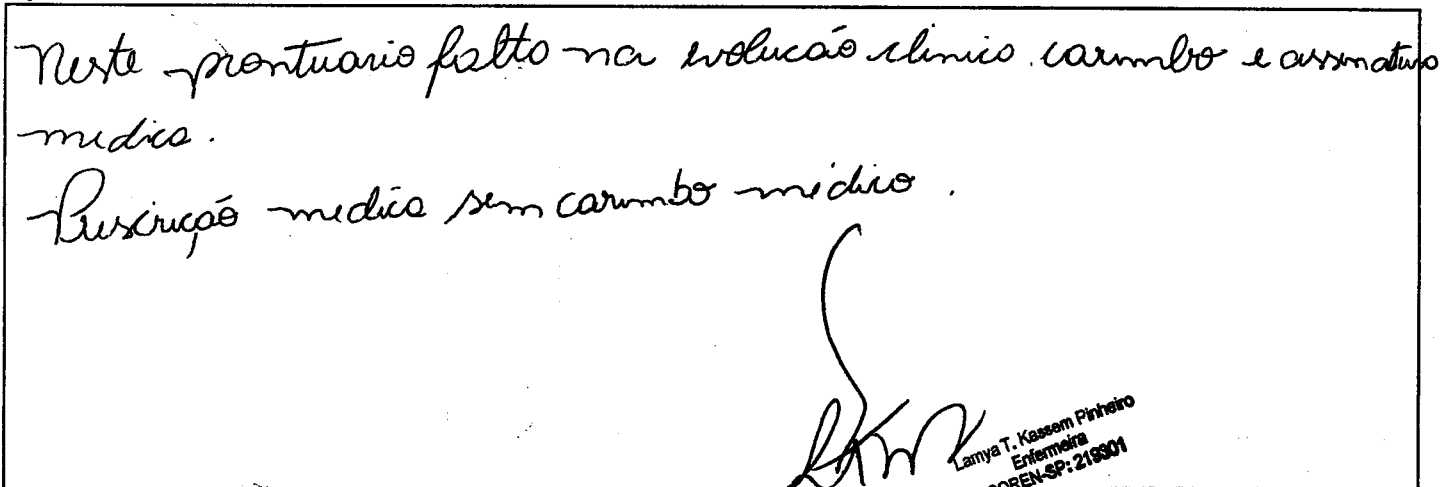 Neste prontuario falta na evolucão clinica carimbo e assinatura
medica.
Prescrição medica sem carimbo médico.
Lamya T. Kassem Pinheiro
Enfermeira
COREN-SP: 219301